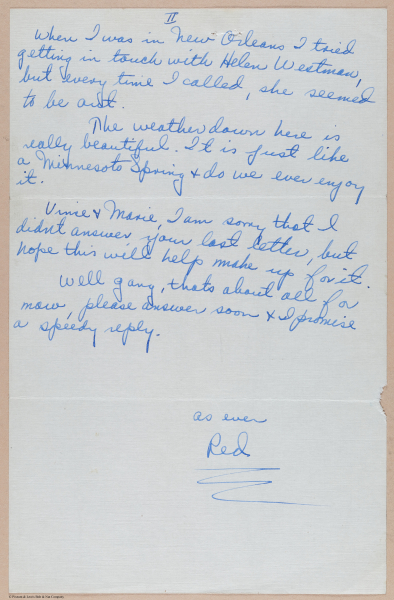 II
When I was in New Orleans I tried
getting in touch with Helen Westman,
but every time I called, she seemed
to be out.
The weather down here is
really beautiful. It is just like
a Minnesota Spring & do we ever enjoy
it.
Vinie & Marie, I am sorry that I
didn't answer your last letter, but
hope this will help make up for it.
Well gang, thats about all for
now, please answer soon & I promise
a speedy reply.
as ever
Red